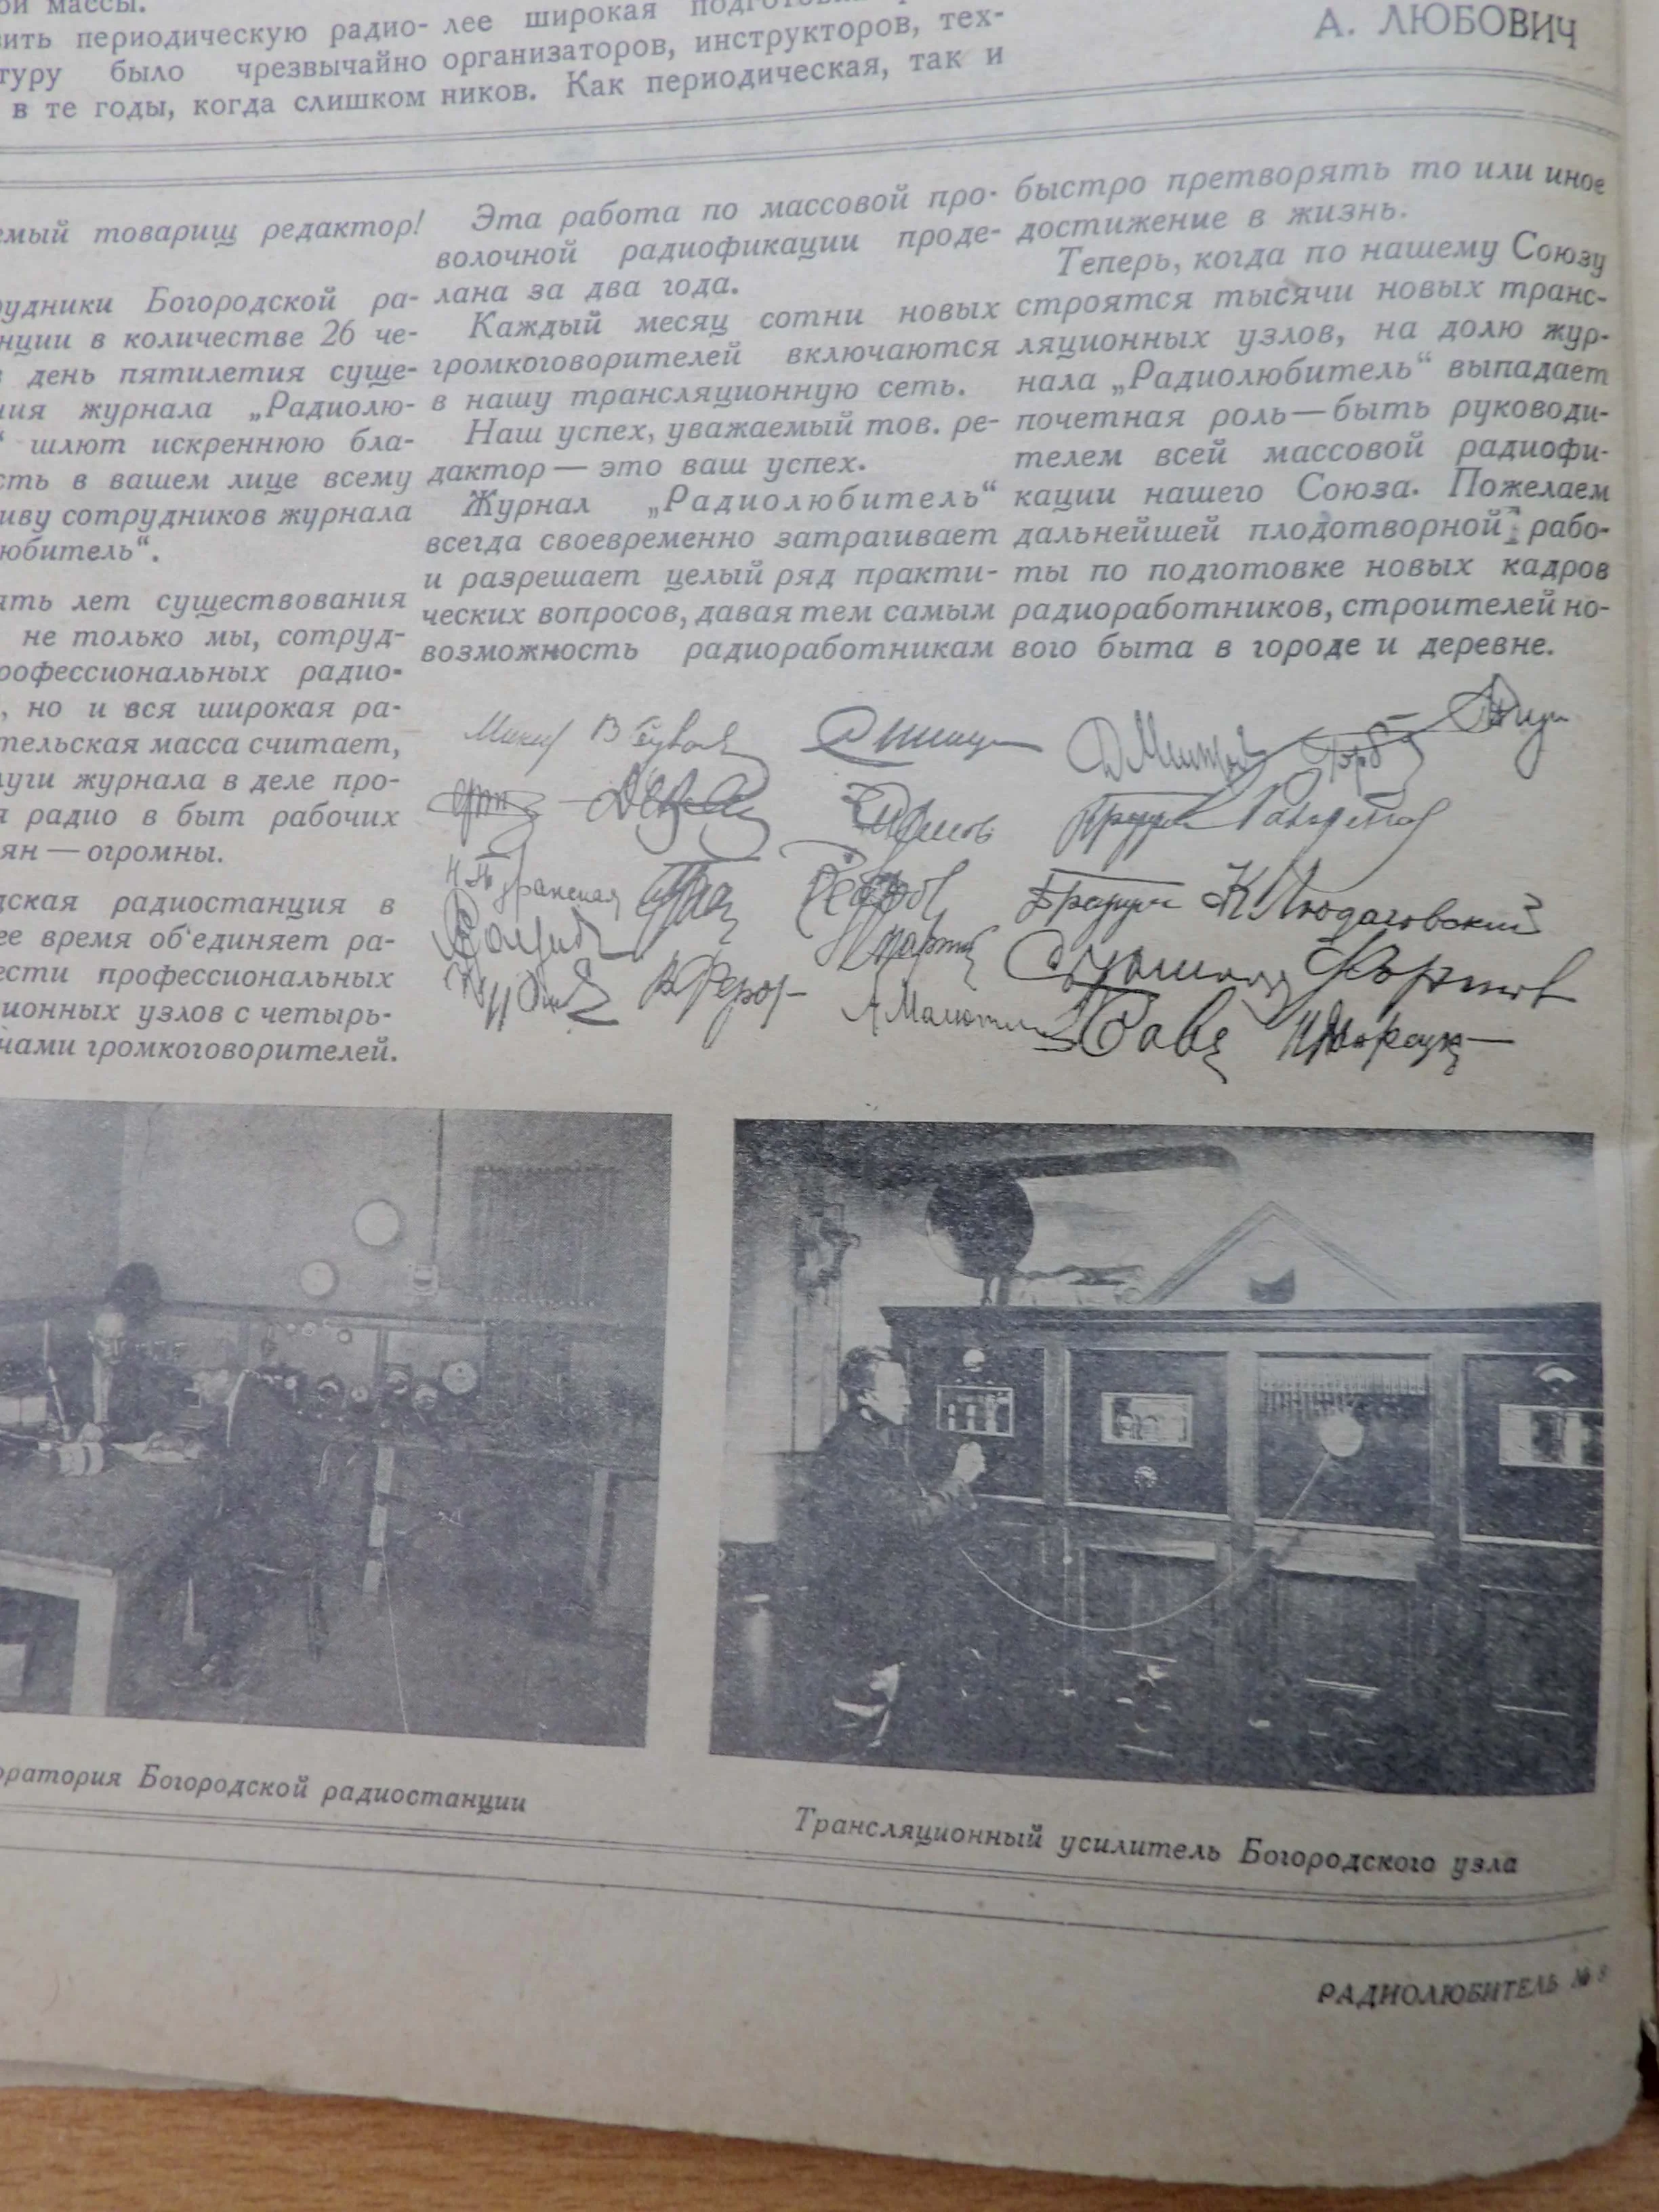 ой массы.
вить периодическую радио-
туру было чрезвычайно
в те годы, когда слишком
лее широкая
организаторов, инструкторов, тех-
ников. Как периодическая, так и
А. ЛЮБОВИЧ
емый товарищ редактор!
рудники Богородской ра-
нции в количестве 26 че-
в день пятилетия суще-
ния журнала „Радиолю-
“ шлют искреннюю бла-
сть в вашем лице всему
иву сотрудников журнала
любитель“.
ять лет существования
не только мы, сотруд-
рофессиональных радио-
, но и вся широкая ра-
тельская масса считает,
луги журнала в деле про-
я радио в быт рабочих
ян — огромны.
дская радиостанция в
ее время об'единяет ра-
ести профессиональных
ионных узлов с четырь-
чами громкоговорителей.
Эта работа по массовой про-
волочной радиофикации проде-
лана за два года.
Каждый месяц сотни новых
громкоговорителей включаются
в нашу трансляционную сеть.
Наш успех, уважаемый тов. ре-
дактор — это ваш успех.
Журнал „Радиолюбитель“
всегда своевременно затрагивает
и разрешает целый ряд практи-
ческих вопросов, давая тем самым
возможность радиоработникам
быстро претворять то или иное
достижение в жизнь.
Теперь, когда по нашему Союзу
строятся тысячи новых транс-
ляционных узлов, на долю жур-
нала „Радиолюбитель“ выпадает
почетная роль — быть руководи-
телем всей массовой радиофи-
кации нашего Союза. Пожелаем
дальнейшей плодотворной рабо-
ты по подготовке новых кадров
радиоработников, строителей но-
вого быта в городе и деревне.
оратория Богородской радиостанции
Трансляционный усилитель Богородского узла
РАДИОЛЮБИТЕЛЬ № 8